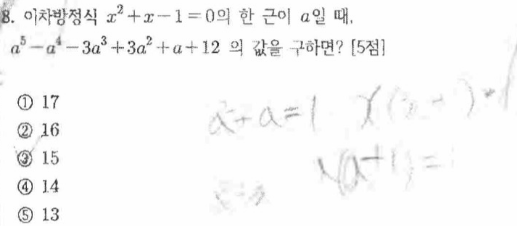 8. 이차방정식 x²+x-1=0의 한 근이 a일 때,
a⁵-a⁴-3a³+3a²+a+12 의 값을 구하면? [5점]
① 17
② 16
③ 15
④ 14
⑤ 13
a²+a=1